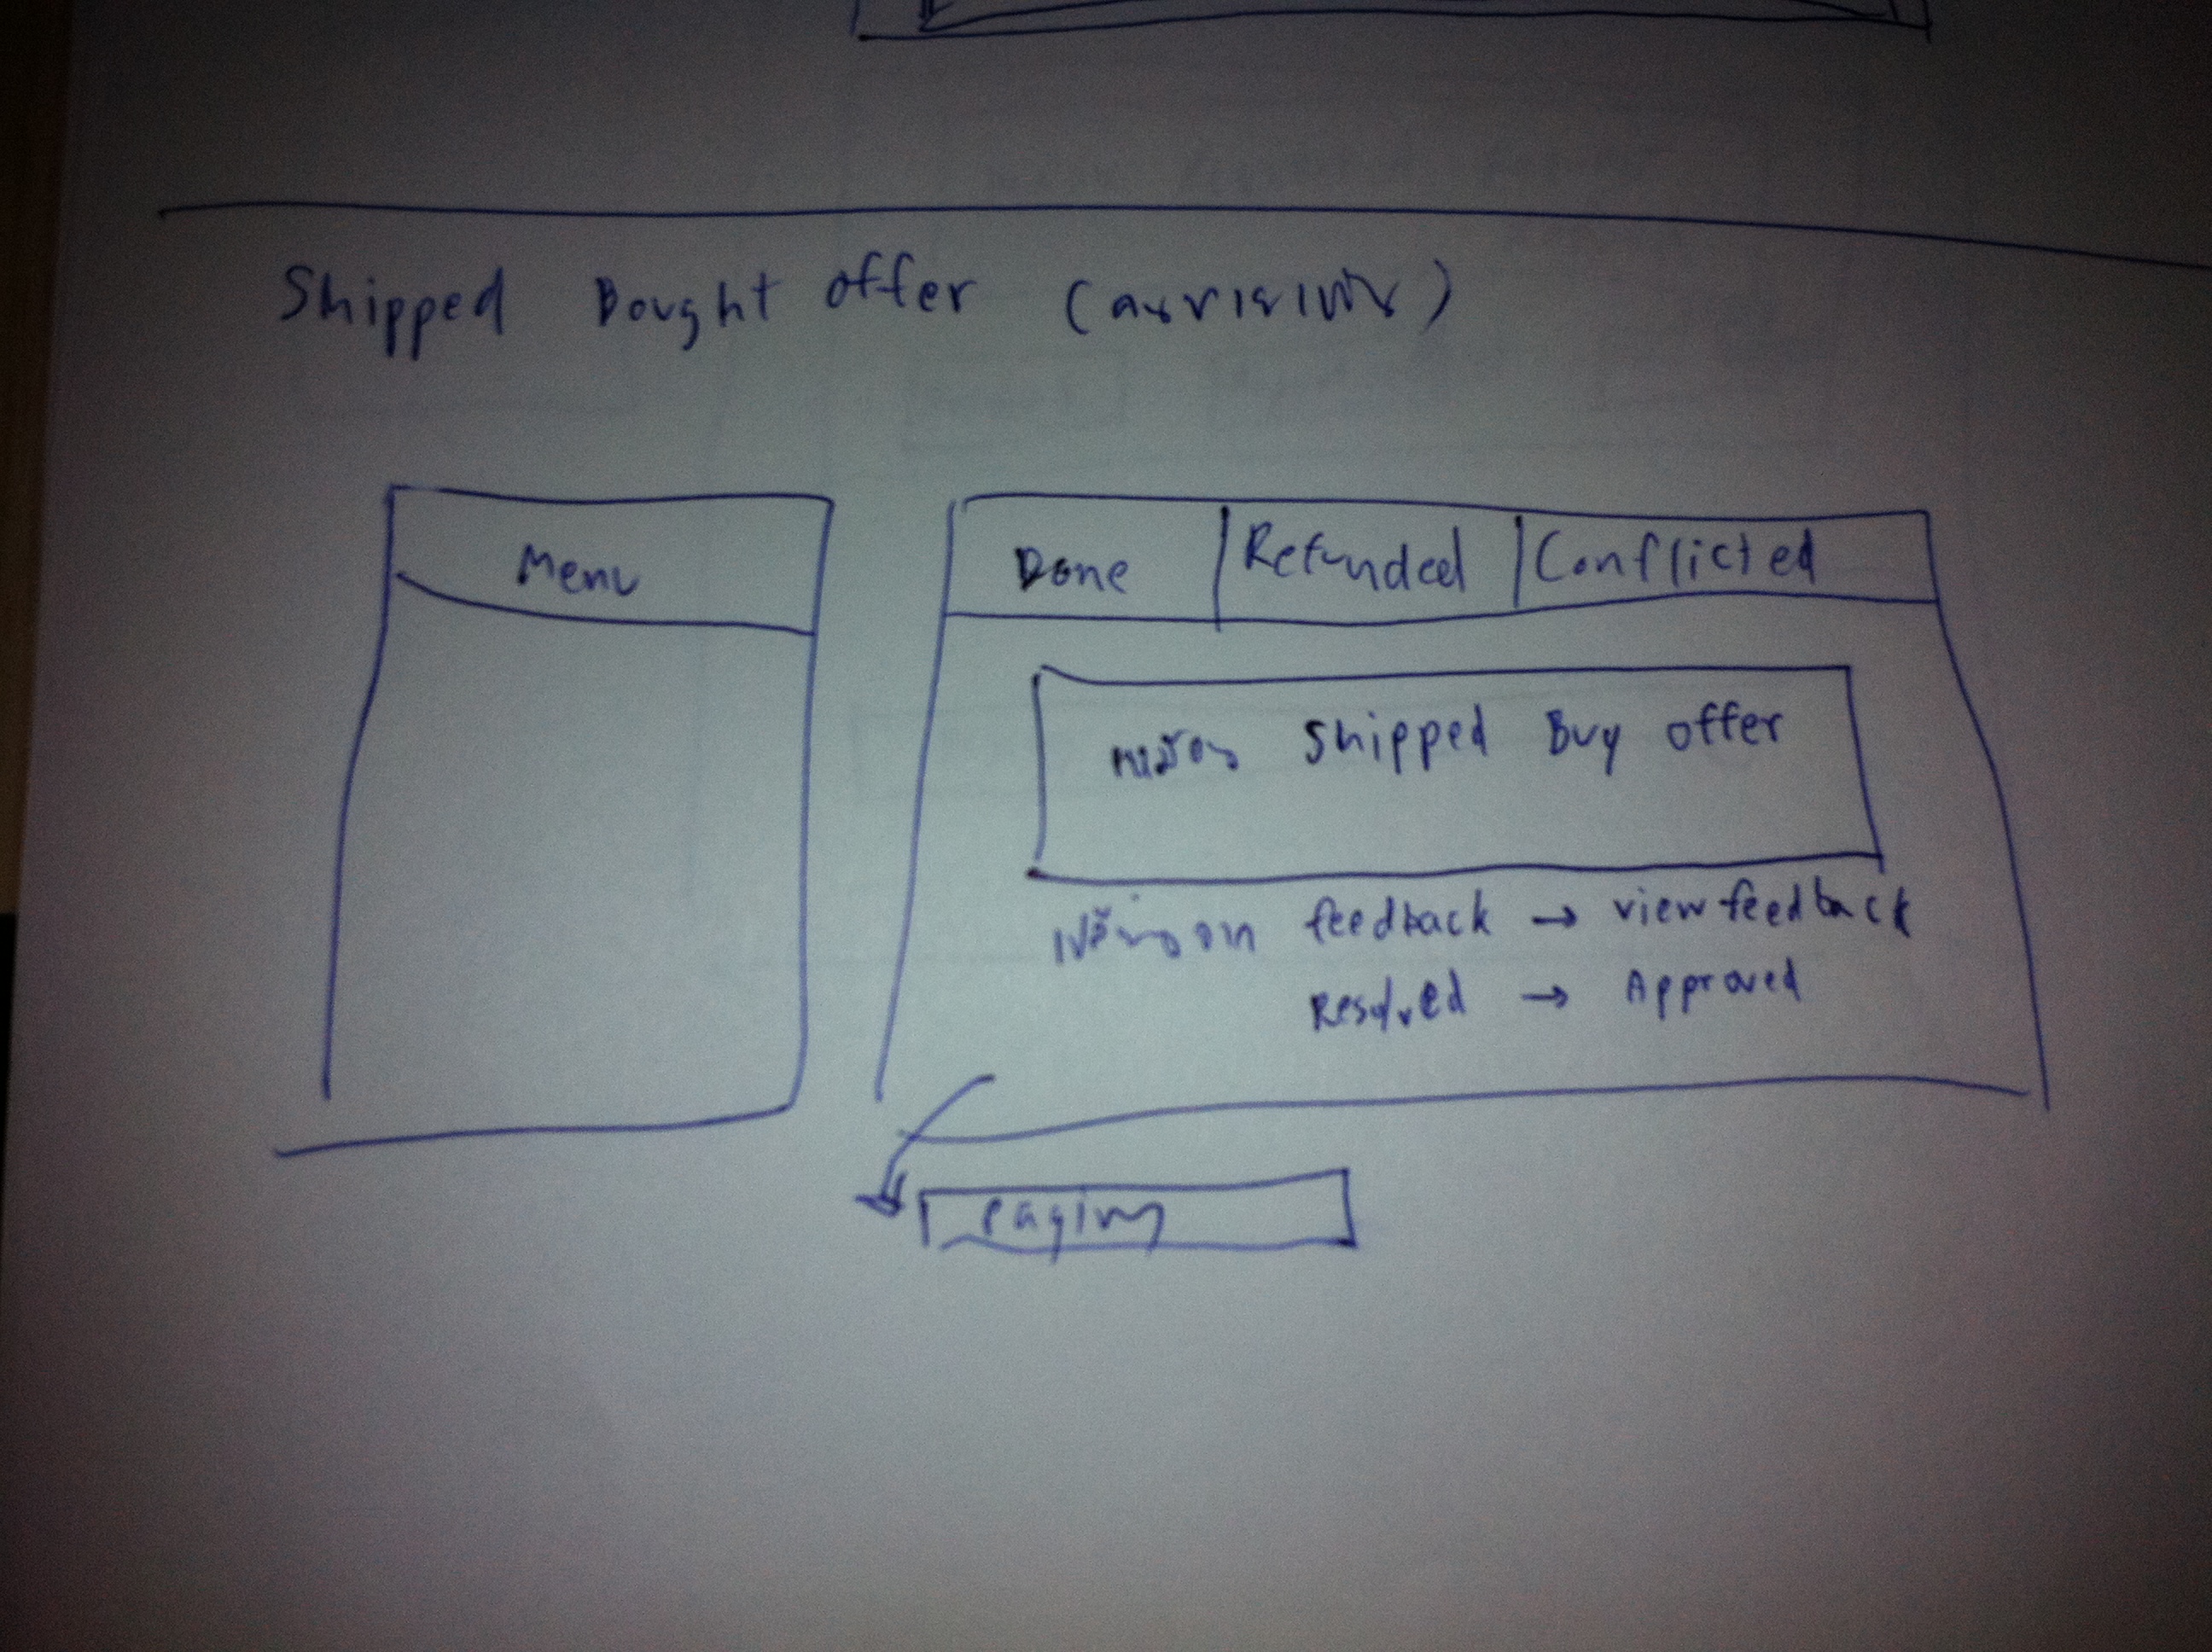 Shipped Bought offer (
Menu
Done | Refunded | Conflicted
เหมือน Shipped Buy offer
เปลี่ยนจาก feedback → view feedback
Resolved → Approved
Paging